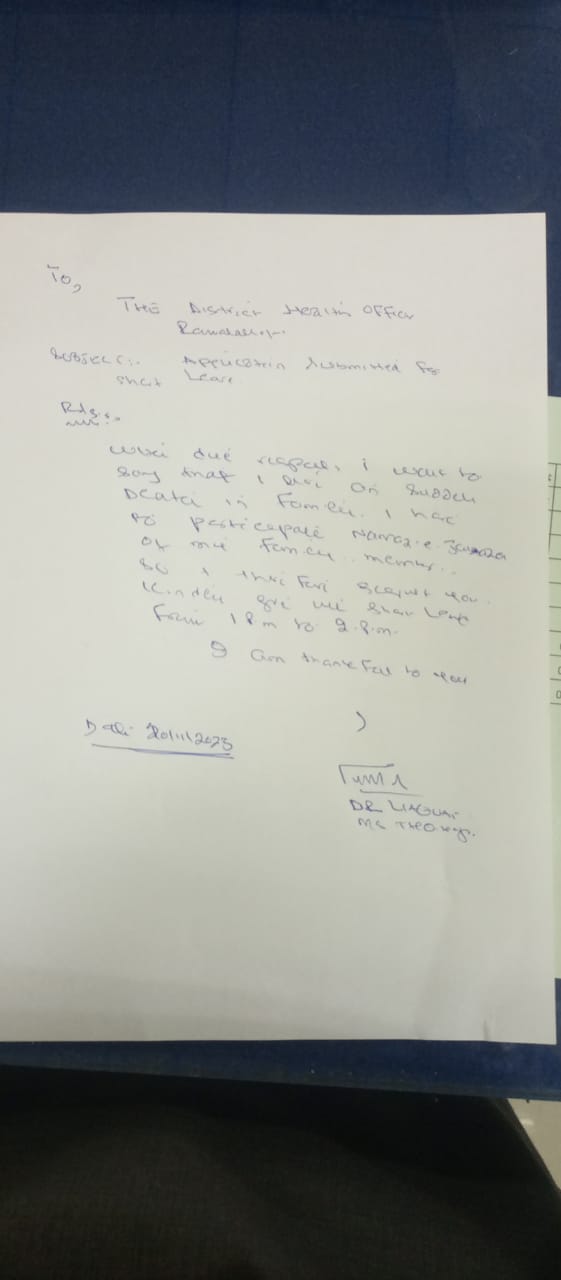 To,
THE District Health Officer
Rawalpindi.
Subject:- Application Submitted for
Short Leave.
R/S:-
With due respect, I want to
say that I on Sudden
Death in Family. I had
to participate Namaz-e-Janaza
of my family member.
So I request you
Kindly give me Short Leave
from 1 P.m to 2.P.m.
I am thankful to you
Date 20/11/2023
DR LIAQUAT
MS THQ